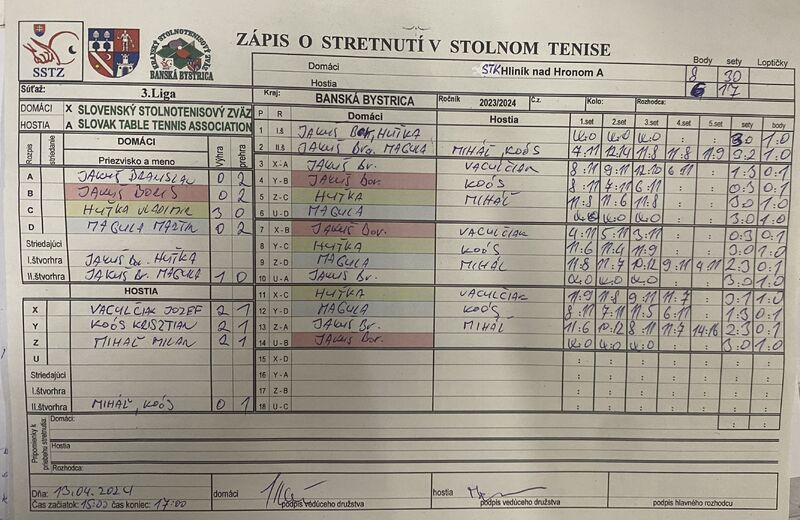 SSTZ
KRAJSKÝ STOLNOTENISOVÝ ZVÄZ
BANSKÁ BYSTRICA
ZÁPIS O STRETNUTÍ V STOLNOM TENISE
Body sety Loptičky
Domáci STKHliník nad Hronom A 8 30
Hostia 6 17
Súťaž: 3.Liga Kraj: BANSKÁ BYSTRICA Ročník 2023/2024 Č.z. Kolo: Rozhodca:
DOMÁCI X SLOVENSKÝ STOLNOTENISOVÝ ZVÄZ
HOSTIA A SLOVAK TABLE TENNIS ASSOCIATION
P R Domáci Hostia 1.set 2.set 3.set 4.set 5.set sety body
Rozpis striedanie DOMÁCI Výhra prehra
Priezvisko a meno
A JAKUŠ BRANISLAV 0 2
B JAKUŠ BORIS 0 2
C HUŤKA VLADIMIR 3 0
D MAGULA MARTIN 0 2
Striedajúci
I.štvorhra JAKUŠ Br. HUŤKA
II.štvorhra JAKUŠ Br. MAGULA 1 0
HOSTIA
X VACULČIAK JOZEF 2 1
Y KOÓS KRISZTIAN 2 1
Z MIHÁĽ MILAN 2 1
U
Striedajúci
I.štvorhra
II.štvorhra MIHÁĽ, KOÓS 0 1
1 I.š HUŤKA W:0 W:0 W:0 : : 3:0 1:0
2 II.š JAKUŠ Br. MAGULA MIHÁĽ KOÓS 7:11 12:14 11:8 11:8 11:9 3:2 1:0
3 X-A JAKUŠ Br. VACULČIAK 8:11 9:11 12:10 6:11 : 1:3 0:1
4 Y-B JAKUŠ Bor. KOÓS 8:11 7:11 6:11 : : 0:3 0:1
5 Z-C HUŤKA MIHÁĽ 11:8 11:6 11:8 : : 3:0 1:0
6 U-D MAGULA W:0 W:0 W:0 : : 3:0 1:0
7 X-B JAKUŠ Bor. VACULČIAK 4:11 5:11 3:11 : : 0:3 0:1
8 Y-C HUŤKA KOÓS 11:6 11:4 11:9 : : 3:0 1:0
9 Z-D MAGULA MIHÁĽ 11:8 11:7 10:12 9:11 4:11 2:3 0:1
10 U-A JAKUŠ Br. W:0 W:0 W:0 : : 3:0 1:0
11 X-C HUŤKA VACULČIAK 11:9 11:8 9:11 11:7 : 3:1 1:0
12 Y-D MAGULA KOÓS 8:11 7:11 11:5 6:11 : 1:3 0:1
13 Z-A JAKUŠ Br. MIHÁĽ 11:6 10:12 8:11 11:7 14:16 2:3 0:1
14 U-B JAKUŠ Bor. W:0 W:0 W:0 : : 3:0 1:0
15 X-D : : : : : : :
16 Y-A : : : : : : :
17 Z-B : : : : : : :
18 U-C : : : : : : :
Pripomienky k priebehu stretnutia:
Domáci:
Hostia
Rozhodca:
Dňa: 13.04.2024 domáci hostia
Čas začiatok: 15:00 čas koniec: 17:00 podpis vedúceho družstva podpis vedúceho družstva podpis hlavného rozhodcu